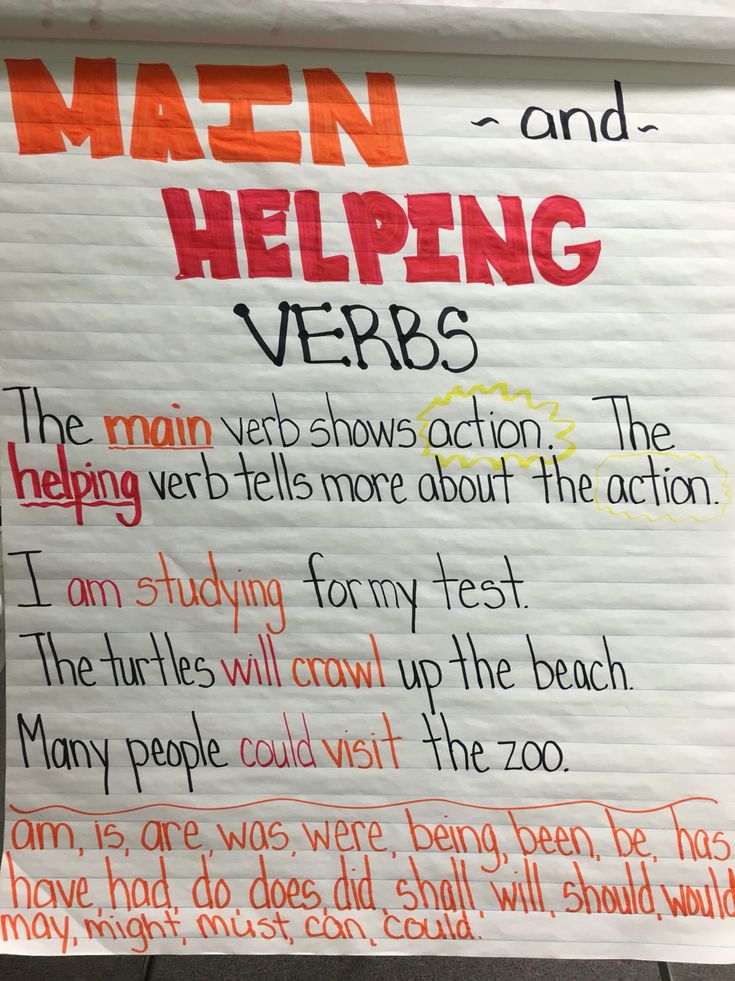 MAIN ~ and ~
HELPING
VERBS
The main verb shows action. The
helping verb tells more about the action.
I am studying for my test.
The turtles will crawl up the beach.
Many people could visit the zoo.
am, is, are, was, were, being, been, be, has
have, had, do, does, did, shall, will, should, would
may, might, must, can, could.